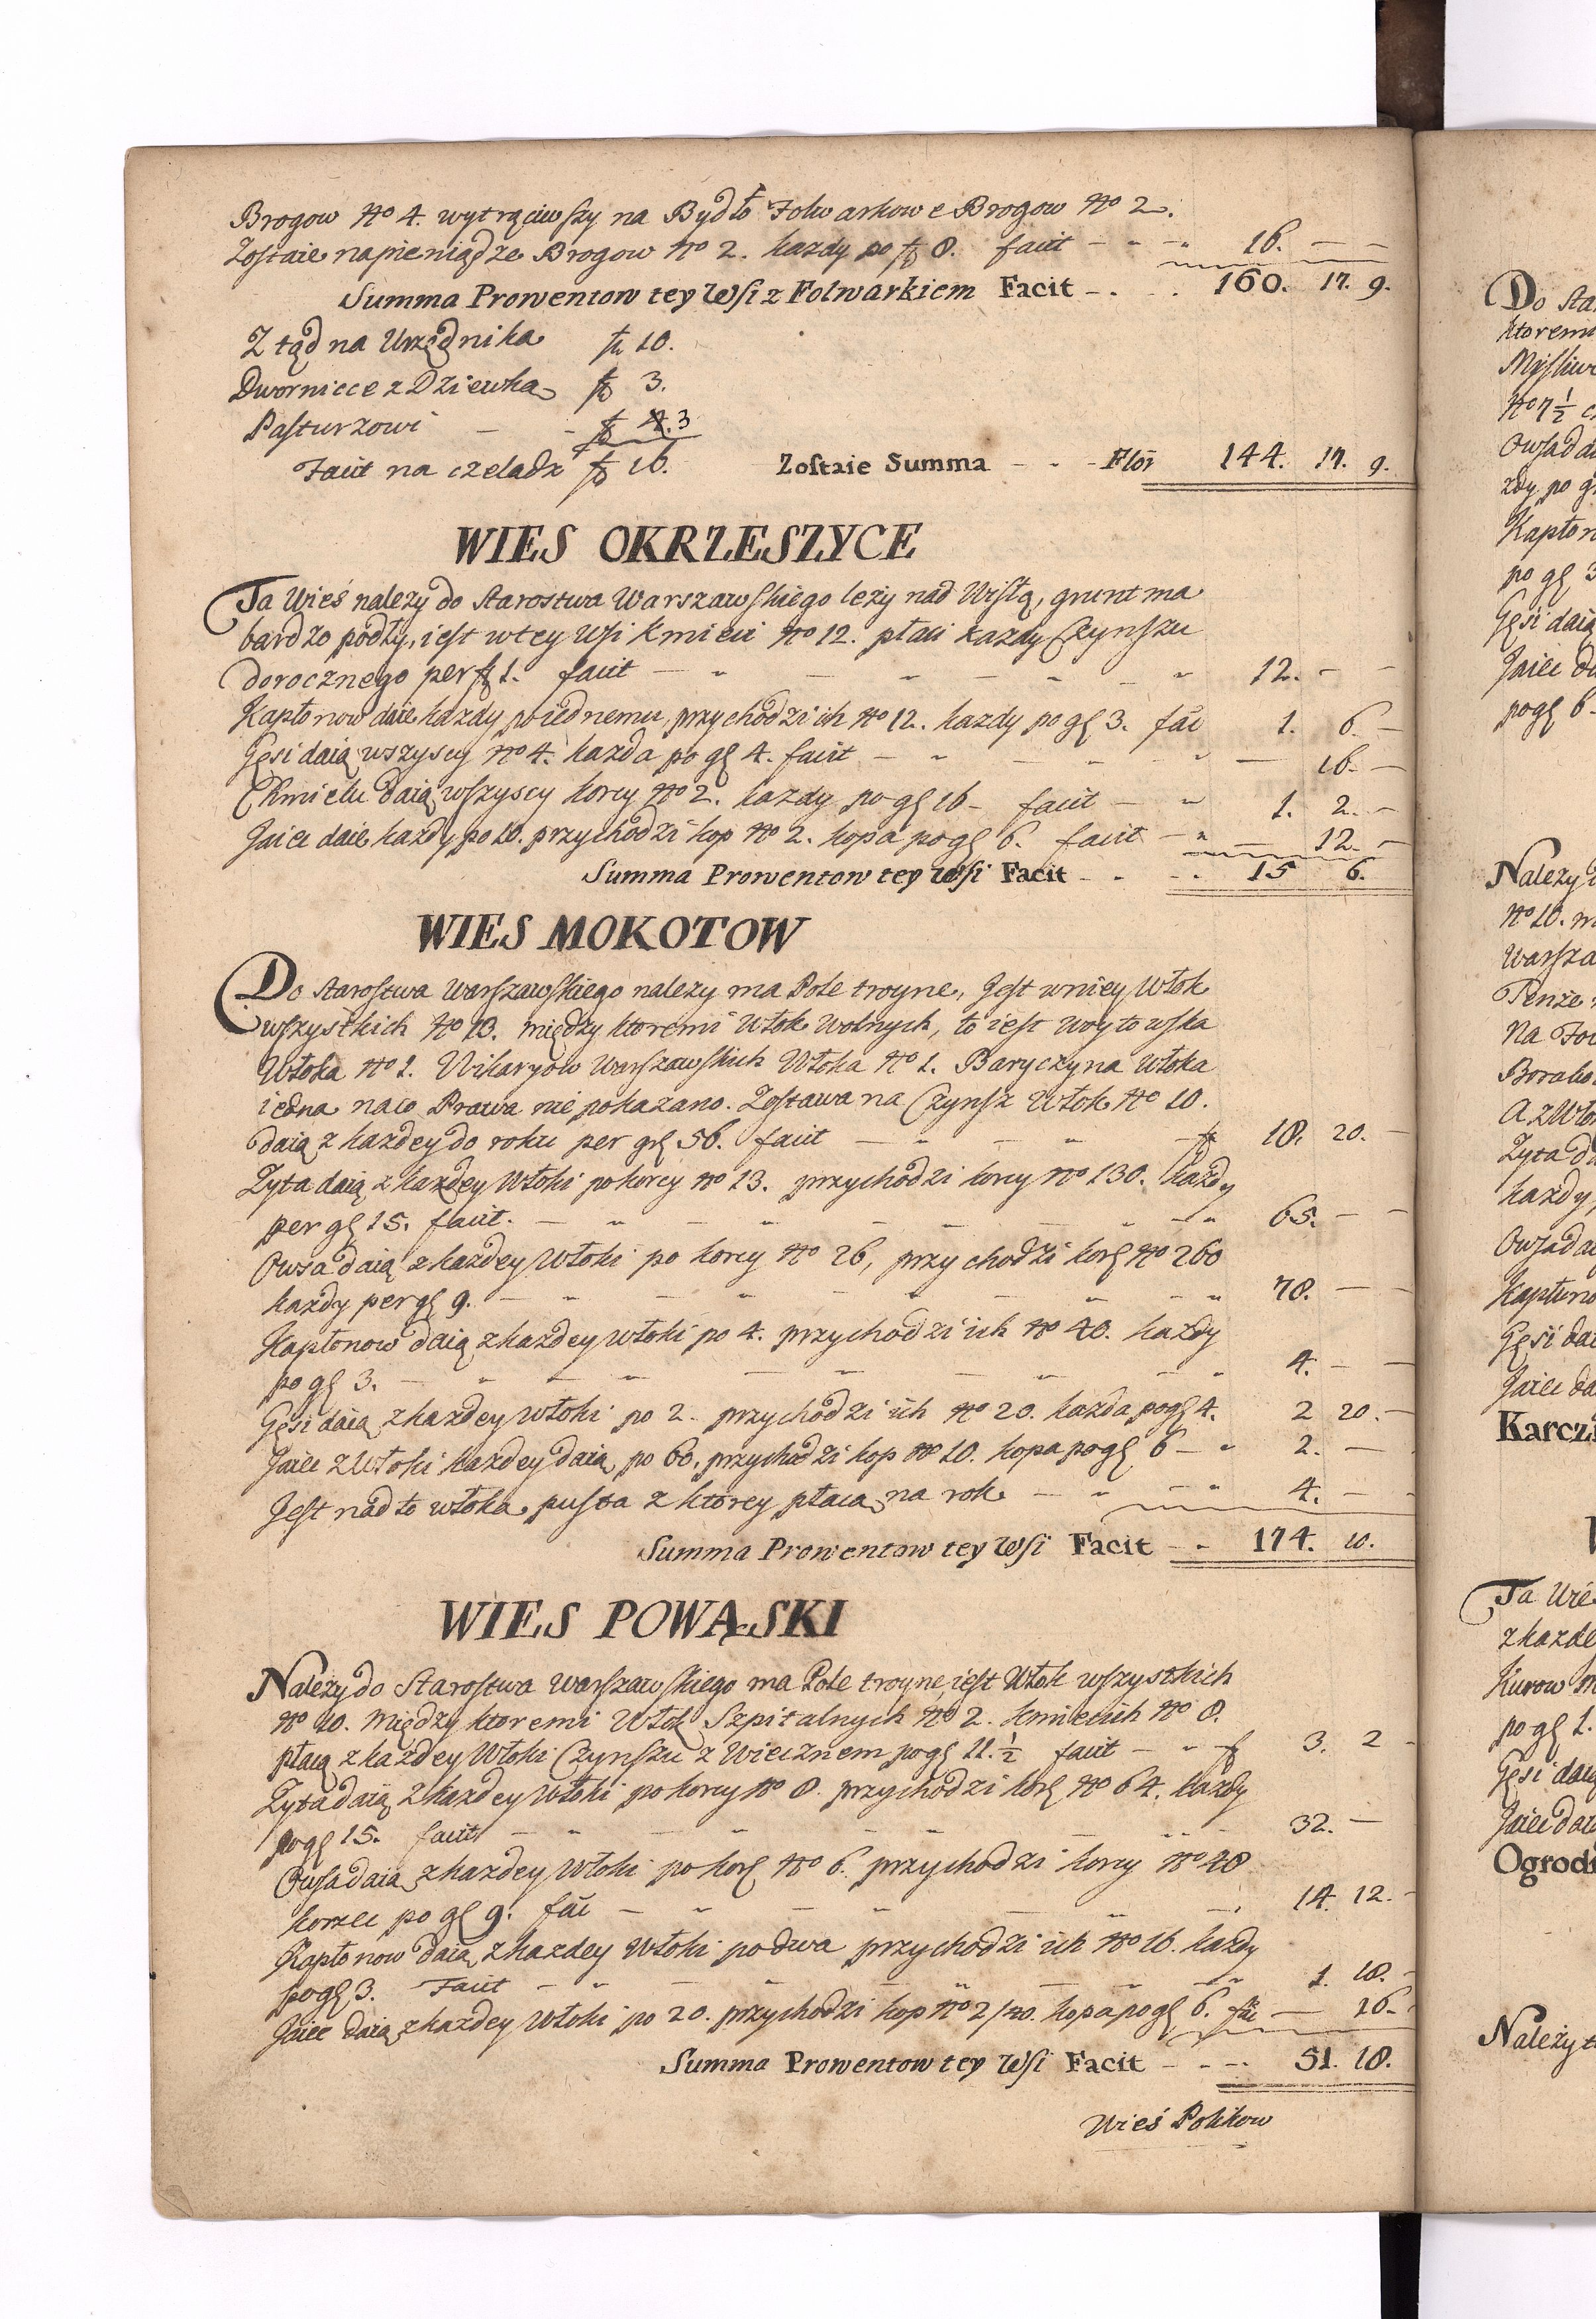 Brogow No 4. wytrąciwszy na Bydło Folwarkowe Brogow No 2.
Zostaie na pieniądze Brogow No 2. kazdy po fl 8. facit - - - 16. - -
Summa Prowentow tey Wsi z Folwarkiem Facit - . . 160. 17. 9.
Z tąd na Urzędnika fl 10.
Dwornicce z Dziewką fl 3.
Pasturzowi - - fl 3
Facit na czeladz fl 16. Zostaie Summa - - - Flor 144. 17. 9.
WIES OKRZESZYCE
Ta Wieś nalezy do Starostwa Warszawskiego leży nad Wisłą, grunt ma
bardzo podły, iest w tey Wsi Kmieci No 12. płaci kazdy Czynszu
dorocznego per fl 1. facit - - - - - - - 12. - -
Kapłonow daie kazdy po iednemu, przychodzi ich No 12. kazdy po gł 3. fac 1. 6. -
Gęsi daią wszyscy No 4. kazda po gł 4. facit - - - - - - 16. -
Chmielu daią wszyscy korcy No 2. kazdy po gł 16 - facit - - 1. 2. -
Jaiec daie kazdy po 10. przychodzi kop No 2. kopa po gł 6. facit - - - 12. -
Summa Prowentow tey Wsi Facit - - - - 15 6.
WIES MOKOTOW
Do Starostwa Warszawskiego nalezy ma Pole troyne, Jest w niey Włok
wszystkich No 13. między ktoremi Włok wolnych, to iest woytowska
Włoka No 1. Wikaryow Warszawskich Włoka No 1. Baryczyna Włoka
iedna na co Prawa nie pokazano. Zostawa na Czynsz Włok No 10.
daią z kazdey do roku per gł 56. facit - - - - fl 18. 20. -
Zyta daią z kazdey Włoki po korcy No 13. przychodzi korcy No 130. kazdy
per gł 15. facit. - - - - - - - - - 65. - -
Owsa daią z kazdey Włoki po korcy No 26, przychodzi korł No 260
kazdy per gł 9. - - - - - - - - - 78. - -
Kapłonow daią z kazdey włoki po 4. przychodzi ich No 40. kazdy
po gł 3. - - - - - - - - - - 4. - -
Gęsi daią z kazdey włoki po 2. przychodzi ich No 20. kazda po gł 4. 2 20. -
Jaiec z Włoki kazdey daią po 60. przychodzi kop No 10. kopa po gł 6 - - 2. -
Jest nad to włoka pusta z ktorey płacą na rok - - - - 4. - -
Summa Prowentow tey Wsi Facit - - 174. 10.
WIES POWĄSKI
Należy do Starostwa Warszawskiego ma Pole troyne, iest Włok wszystkich
No 10. Między ktoremi Włok Szpitalnych No 2. Kmiecich No 8.
płacą z kazdey Włoki Czynszu z Wiecznem po gł 11. ½ facit - - f 3. 2 -
Zyta daią z kazdey Włoki po korcy No 8. przychodzi korł No 64. kazdy
po gł 15. facit - - - - - - - - - 32. -
Owsa daią z kazdey Włoki po korł No 6. przychodzi korcy No 48
korzec po gł 9. fac - - - - - - - 14. 12. -
Kapłonow daią z kazdey Włoki po dwa przychodzi ich No 16. kazdy
po gł 3. Facit - - - - - - - - 1. 18. -
Jaiec daią z kazdey Włoki po 20. przychodzi kop No 2/40. kopa po gł 6. fac - 16. -
Summa Prowentow tey Wsi Facit - - - - 51. 18.
Wieś Polikow
Do Sta
ktoremi
Mysliw
No 7 ½
Owsa da
zdy po g
Kapłon
po gł 3
Gęsi daią
Jaiec da
po gł 6.
Należy
No 10. m
Warsza
Tenże
Na Fol
A z Wło
Zyta da
kazdy,
Owsa da
Kapłono
Gęsi da
Jaiec da
Karcz
Ta Wieś
z kazde
Kurow
po gł 1.
Gęsi daią
Jaiec daią
Ogrod
Należy t